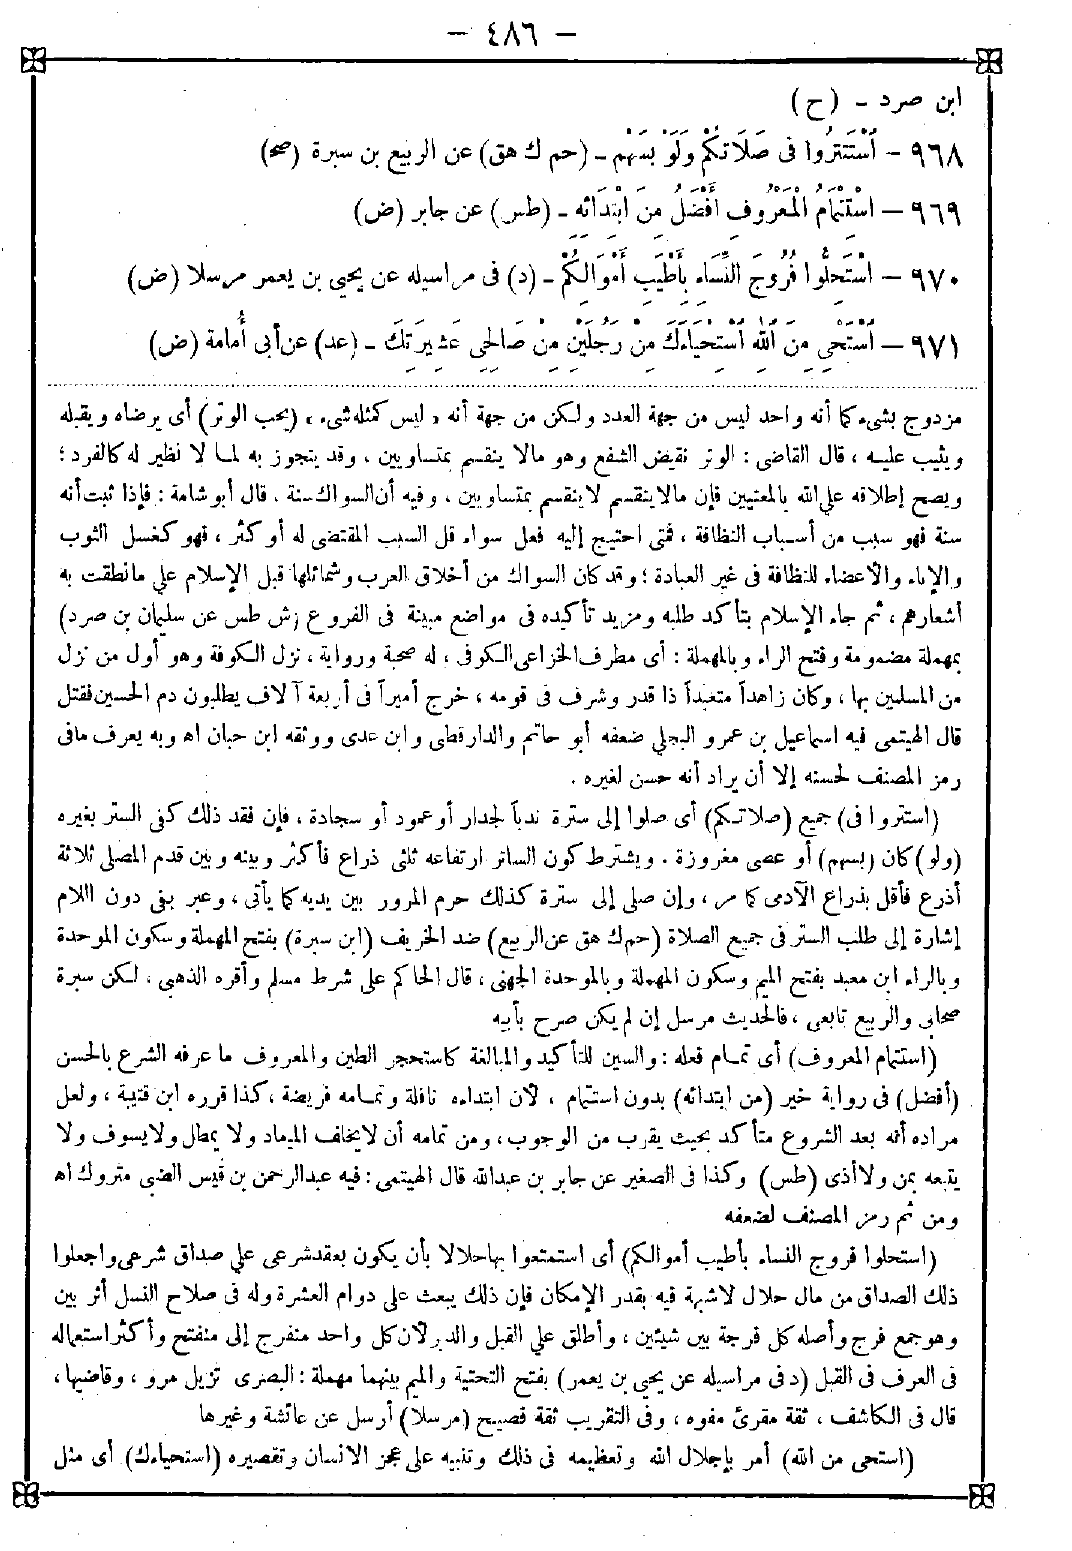 — ٤٨٦ —
ابن صرد - (ح)
٩٦٨ — اسْتَتِرُوا فى صَلَاتِكُمْ وَلَوْ بِسَهْمٍ - (حم ك هق) عن الربيع بن سبرة (صح)
٩٦٩ — اسْتِتْمَامُ الْمَعْرُوفِ أَفْضَلُ مِنَ ابْتِدَائِهِ - (طس) عن جابر (ض)
٩٧٠ — اسْتَحِلُّوا فُرُوجَ النِّسَاءِ بِأَطْيَبِ أَمْوَالِكُمْ - (د) فى مراسيله عن يحيى بن يعمر مرسلا (ض)
٩٧١ — اسْتَحْىِ مِنَ اللهِ اسْتِحْيَاءَكَ مِنْ رَجُلَيْنِ مِنْ صَالِحِى عَشِيرَتِكَ - (عد) عن أبى أُمامة (ض)
مزدوج بشىء كما أنه واحد ليس من جهة العدد ولكن من جهة أنه « ليس كمثله شىء » (يحب الوتر) أى يرضاه ويقبله
ويثيب عليه ، قال القاضى : الوتر نقيض الشفع وهو مالا ينقسم بمتساويين ، وقد يتجوز به لما لا نظير له كالفرد ؛
ويصح إطلاقه على الله بالمعنيين فإن مالا ينقسم لا ينقسم بمتساويين ، وفيه أن السواك سنة ، قال أبو شامة : فإذا ثبت أنه
سنة فهو سبب من أسباب النظافة ، فمتى احتيج إليه فعل سواء قل السبب المقتضى له أو كثر ، فهو كغسل الثوب
والإناء والأعضاء للنظافة فى غير العبادة ؛ وقد كان السواك من أخلاق العرب وشمائلها قبل الإسلام على ما نطقت به
أشعارهم ، ثم جاء الإسلام بتأكد طلبه ومزيد تأكيده فى مواضع مبينة فى الفروع (ش طس عن سليمان بن صرد)
بمهملة مضمومة وفتح الراء وبالمهملة : أى مطرف الخزاعى الكوفى ، له صحبة ورواية ، نزل الكوفة وهو أول من نزل
من المسلمين بها ، وكان زاهداً متعبداً ذا قدر وشرف فى قومه ، خرج أميراً فى أربعة آلاف يطلبون دم الحسين فقتل
قال الهيتمى فيه اسماعيل بن عمرو البجلى ضعفه أبو حاتم والدارقطى وابن عدى ووثقه ابن حبان اه وبه يعرف مافى
رمز المصنف لحسنه إلا أن يراد أنه حسن لغيره .
(استتروا فى) جميع (صلاتكم) أى صلوا إلى سترة ندباً لجدار أو عمود أو سجادة ، فإن فقد ذلك كفى الستر بغيره
(ولو) كان (بسهم) أو عصى مغروزة . ويشترط كون الساتر ارتفاعه ثلثى ذراع فأكثر وبينه وبين قدم المصلى ثلاثة
أذرع فأقل بذراع الآدمى كما مر ، وإن صلى إلى سترة كذلك حرم المرور بين يديه كما يأتى ، وعبر بفى دون اللام
إشارة إلى طلب الستر فى جميع الصلاة (حم ك هق عن الربيع) ضد الخريف (ابن سبرة) بفتح المهملة وسكون الموحدة
وبالراء ابن معبد بفتح الميم وسكون المهملة وبالموحدة الجهنى ، قال الحاكم على شرط مسلم وأقره الذهبى ، لكن سبرة
صحابى والربيع تابعى ، فالحديث مرسل إن لم يكن صرح بأبيه
(استتمام المعروف) أى تمام فعله : والسين للتأكيد والمبالغة كاستحجر الطين والمعروف ما عرفه الشرع بالحسن
(أفضل) فى رواية خير (من ابتدائه) بدون استتمام ، لأن ابتداءه نافلة وتمامه فريضة ، كذا قرره ابن قتيبة ، ولعل
مراده أنه بعد الشروع متأكد بحيث يقرب من الوجوب ، ومن تمامه أن لا يخلف الميعاد ولا يمطل ولا يسوف ولا
يتبعه بمن ولا أذى (طس) وكذا فى الصغير عن جابر بن عبدالله قال الهيتمى : فيه عبدالرحمن بن قيس الضبى متروك اه
ومن ثم رمز المصنف لضعفه
(استحلوا فروج النساء بأطيب أموالكم) أى استمتعوا بها حلالا بأن يكون بعقد شرعى على صداق شرعى واجعلوا
ذلك الصداق من مال حلال لا شبهة فيه بقدر الإمكان فإن ذلك يبعث على دوام العشرة وله فى صلاح النسل أثر بين
وهو جمع فرج وأصله كل فرجة بين شيئين ، وأطلق على القبل والدبر لان كل واحد منفرج إلى منفتح وأكثر استعماله
فى العرف فى القبل (د فى مراسيله عن يحيى بن يعمر) بفتح التحتية والميم بينهما مهملة : البصرى نزيل مرو ، وقاضيها ،
قال فى الكاشف ، ثقة مقرئ مفوه ، وفى التقريب ثقة فصيح (مرسلا) أرسل عن عائشة وغيرها
(استحى من الله) أمر بإجلال الله وتعظيمه فى ذلك وتنبيه على عجز الانسان وتقصيره (استحياءك) أى مثل